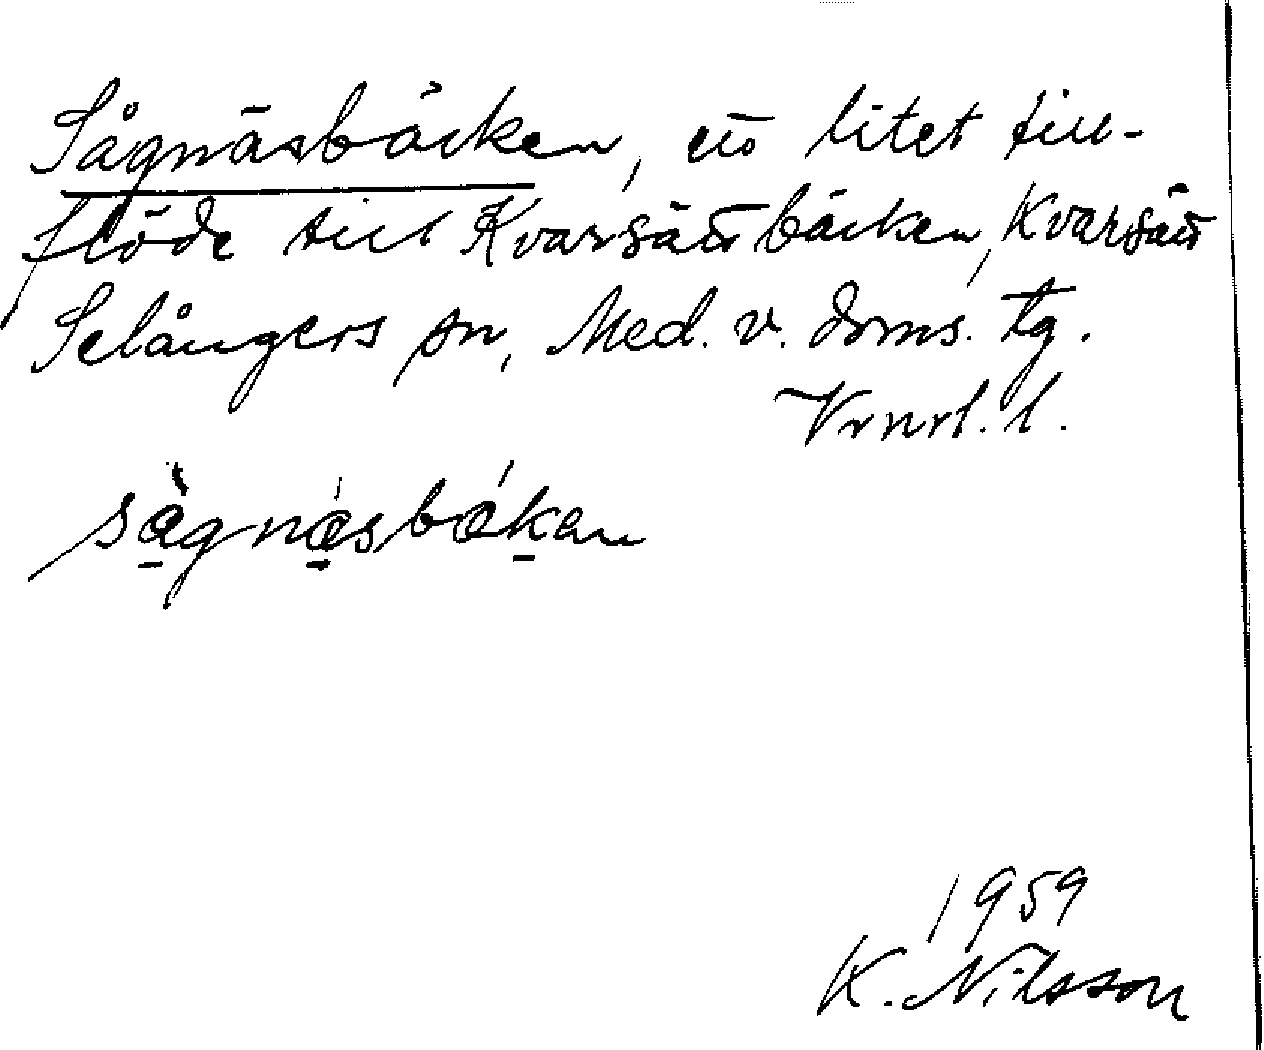 Sågnäsbäcken, ett litet till-
flöde till Kvarsättbäcken, Kvarsätt
Selångers sn, Med. v. doms. tg.
Vrnrl. l.
sågnæsbækan
1959
K. Nilsson